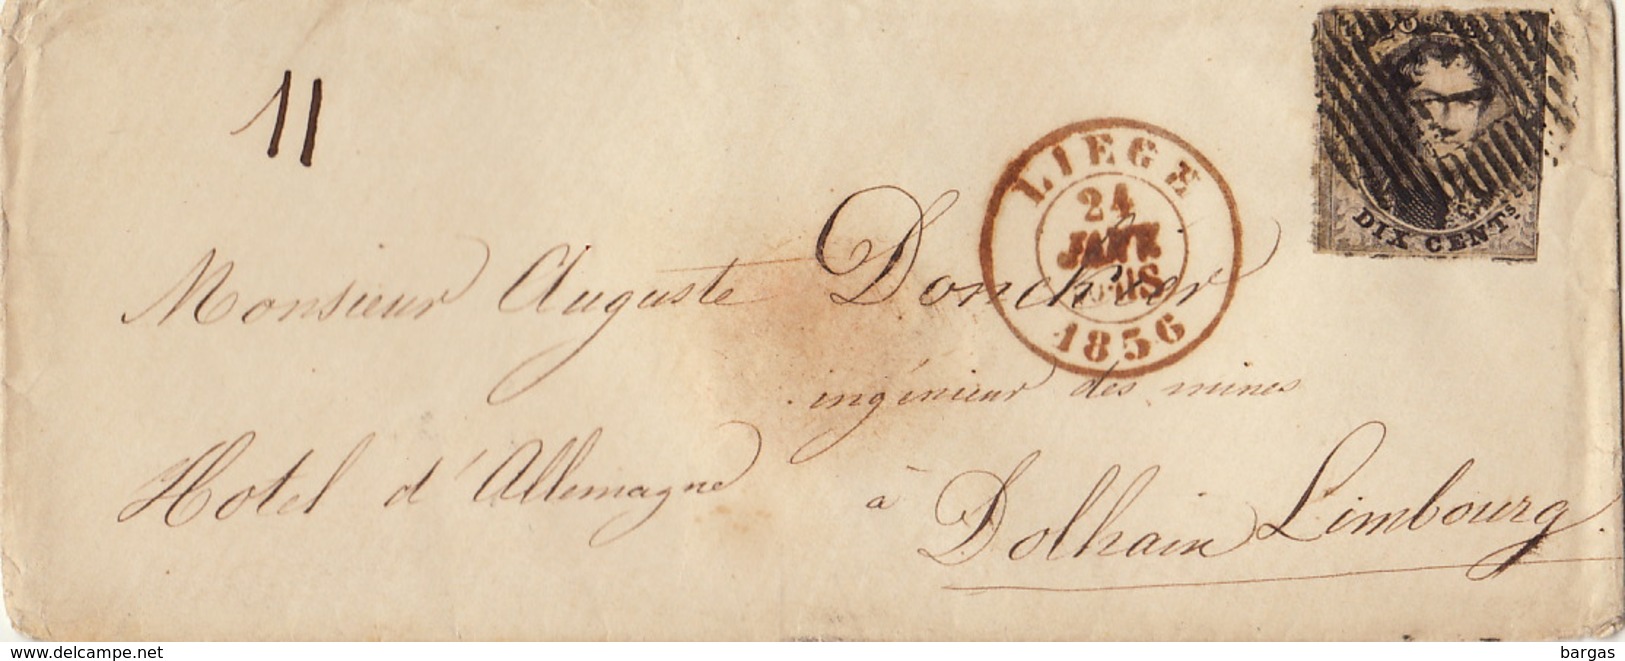 11
DIX CENTs
LIEGE
24
JANV
1856
Monsieur Auguste Doncker
ingénieur des mines
Hotel d'Allemagne à Dolhain Limbourg.
www.delcampe.net
bargas